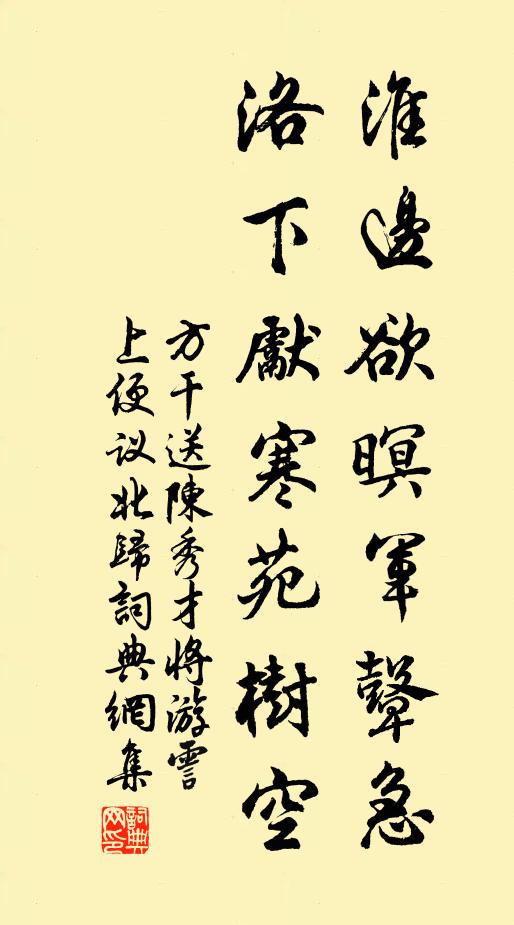 淮邊欲暝軍鼙急
洛下獻寒苑樹空
方干送陳秀才將游霅
上便议北歸詞典網集
詞典
网印